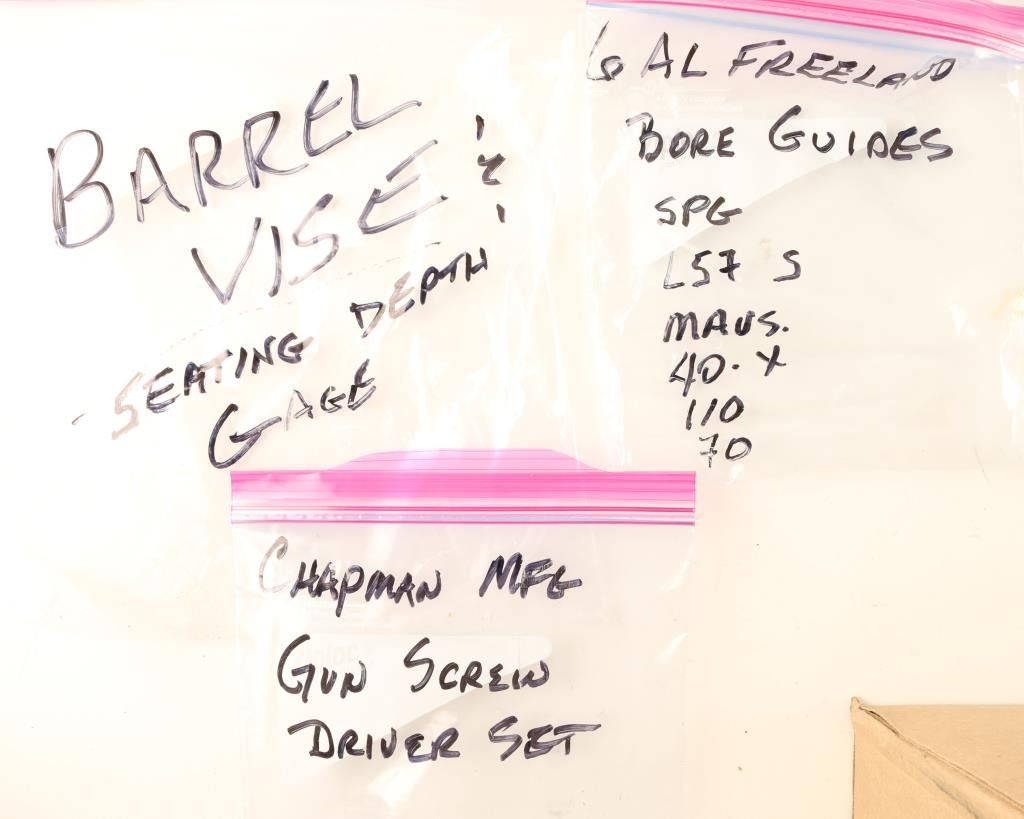 BARREL
VISE &
- SEATING DEPTH
GAGE
6 AL FREELAND
BORE GUIDES
SPG
L57 S
MAUS.
40. X
110
70
CHAPMAN MFG
GUN SCREW
DRIVER SET